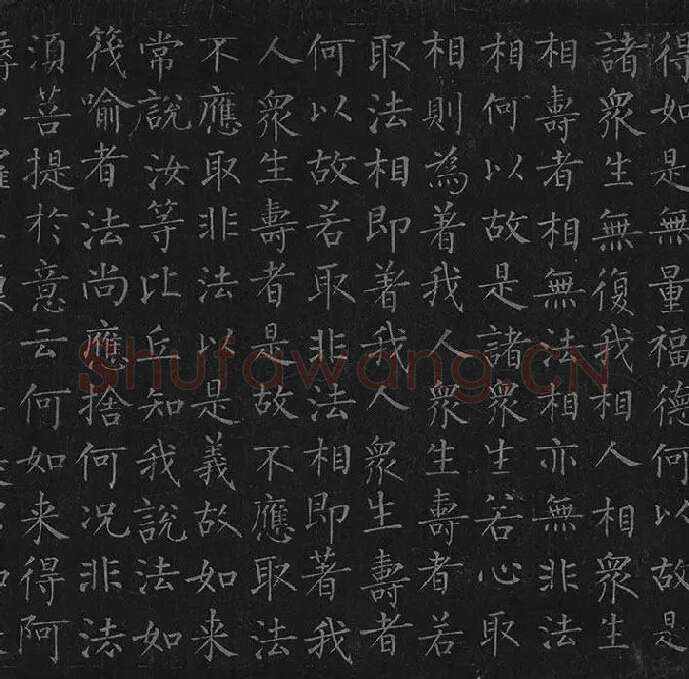 得如是無量福德何以故是
諸衆生無復我相人相衆生
相壽者相無法相亦無非法
相何以故是諸衆生若心取
相則為著我人衆生壽者若
取法相即著我人衆生壽者
何以故若取非法相即著我
人衆生壽者是故不應取法
不應取非法以是義故如来
常說汝等比丘知我說法如
筏喻者法尚應捨何况非法
須菩提於意云何如来得阿
Shufawang.CN